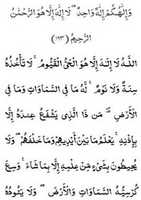 وَإِلَٰهُكُمْ إِلَٰهٌ وَاحِدٌ ۖ لَا إِلَٰهَ إِلَّا هُوَ الرَّحْمَٰنُ
الرَّحِيمُ ﴿١٦٣﴾
اللَّهُ لَا إِلَٰهَ إِلَّا هُوَ الْحَيُّ الْقَيُّومُ ۚ لَا تَأْخُذُهُ
سِنَةٌ وَلَا نَوْمٌ ۚ لَهُ مَا فِي السَّمَاوَاتِ وَمَا فِي
الْأَرْضِ ۗ مَنْ ذَا الَّذِي يَشْفَعُ عِنْدَهُ إِلَّا
بِإِذْنِهِ ۚ يَعْلَمُ مَا بَيْنَ أَيْدِيهِمْ وَمَا خَلْفَهُمْ ۖ وَلَا
يُحِيطُونَ بِشَيْءٍ مِنْ عِلْمِهِ إِلَّا بِمَا شَاءَ ۚ وَسِعَ
كُرْسِيُّهُ السَّمَاوَاتِ وَالْأَرْضَ ۖ وَلَا يَئُودُهُ